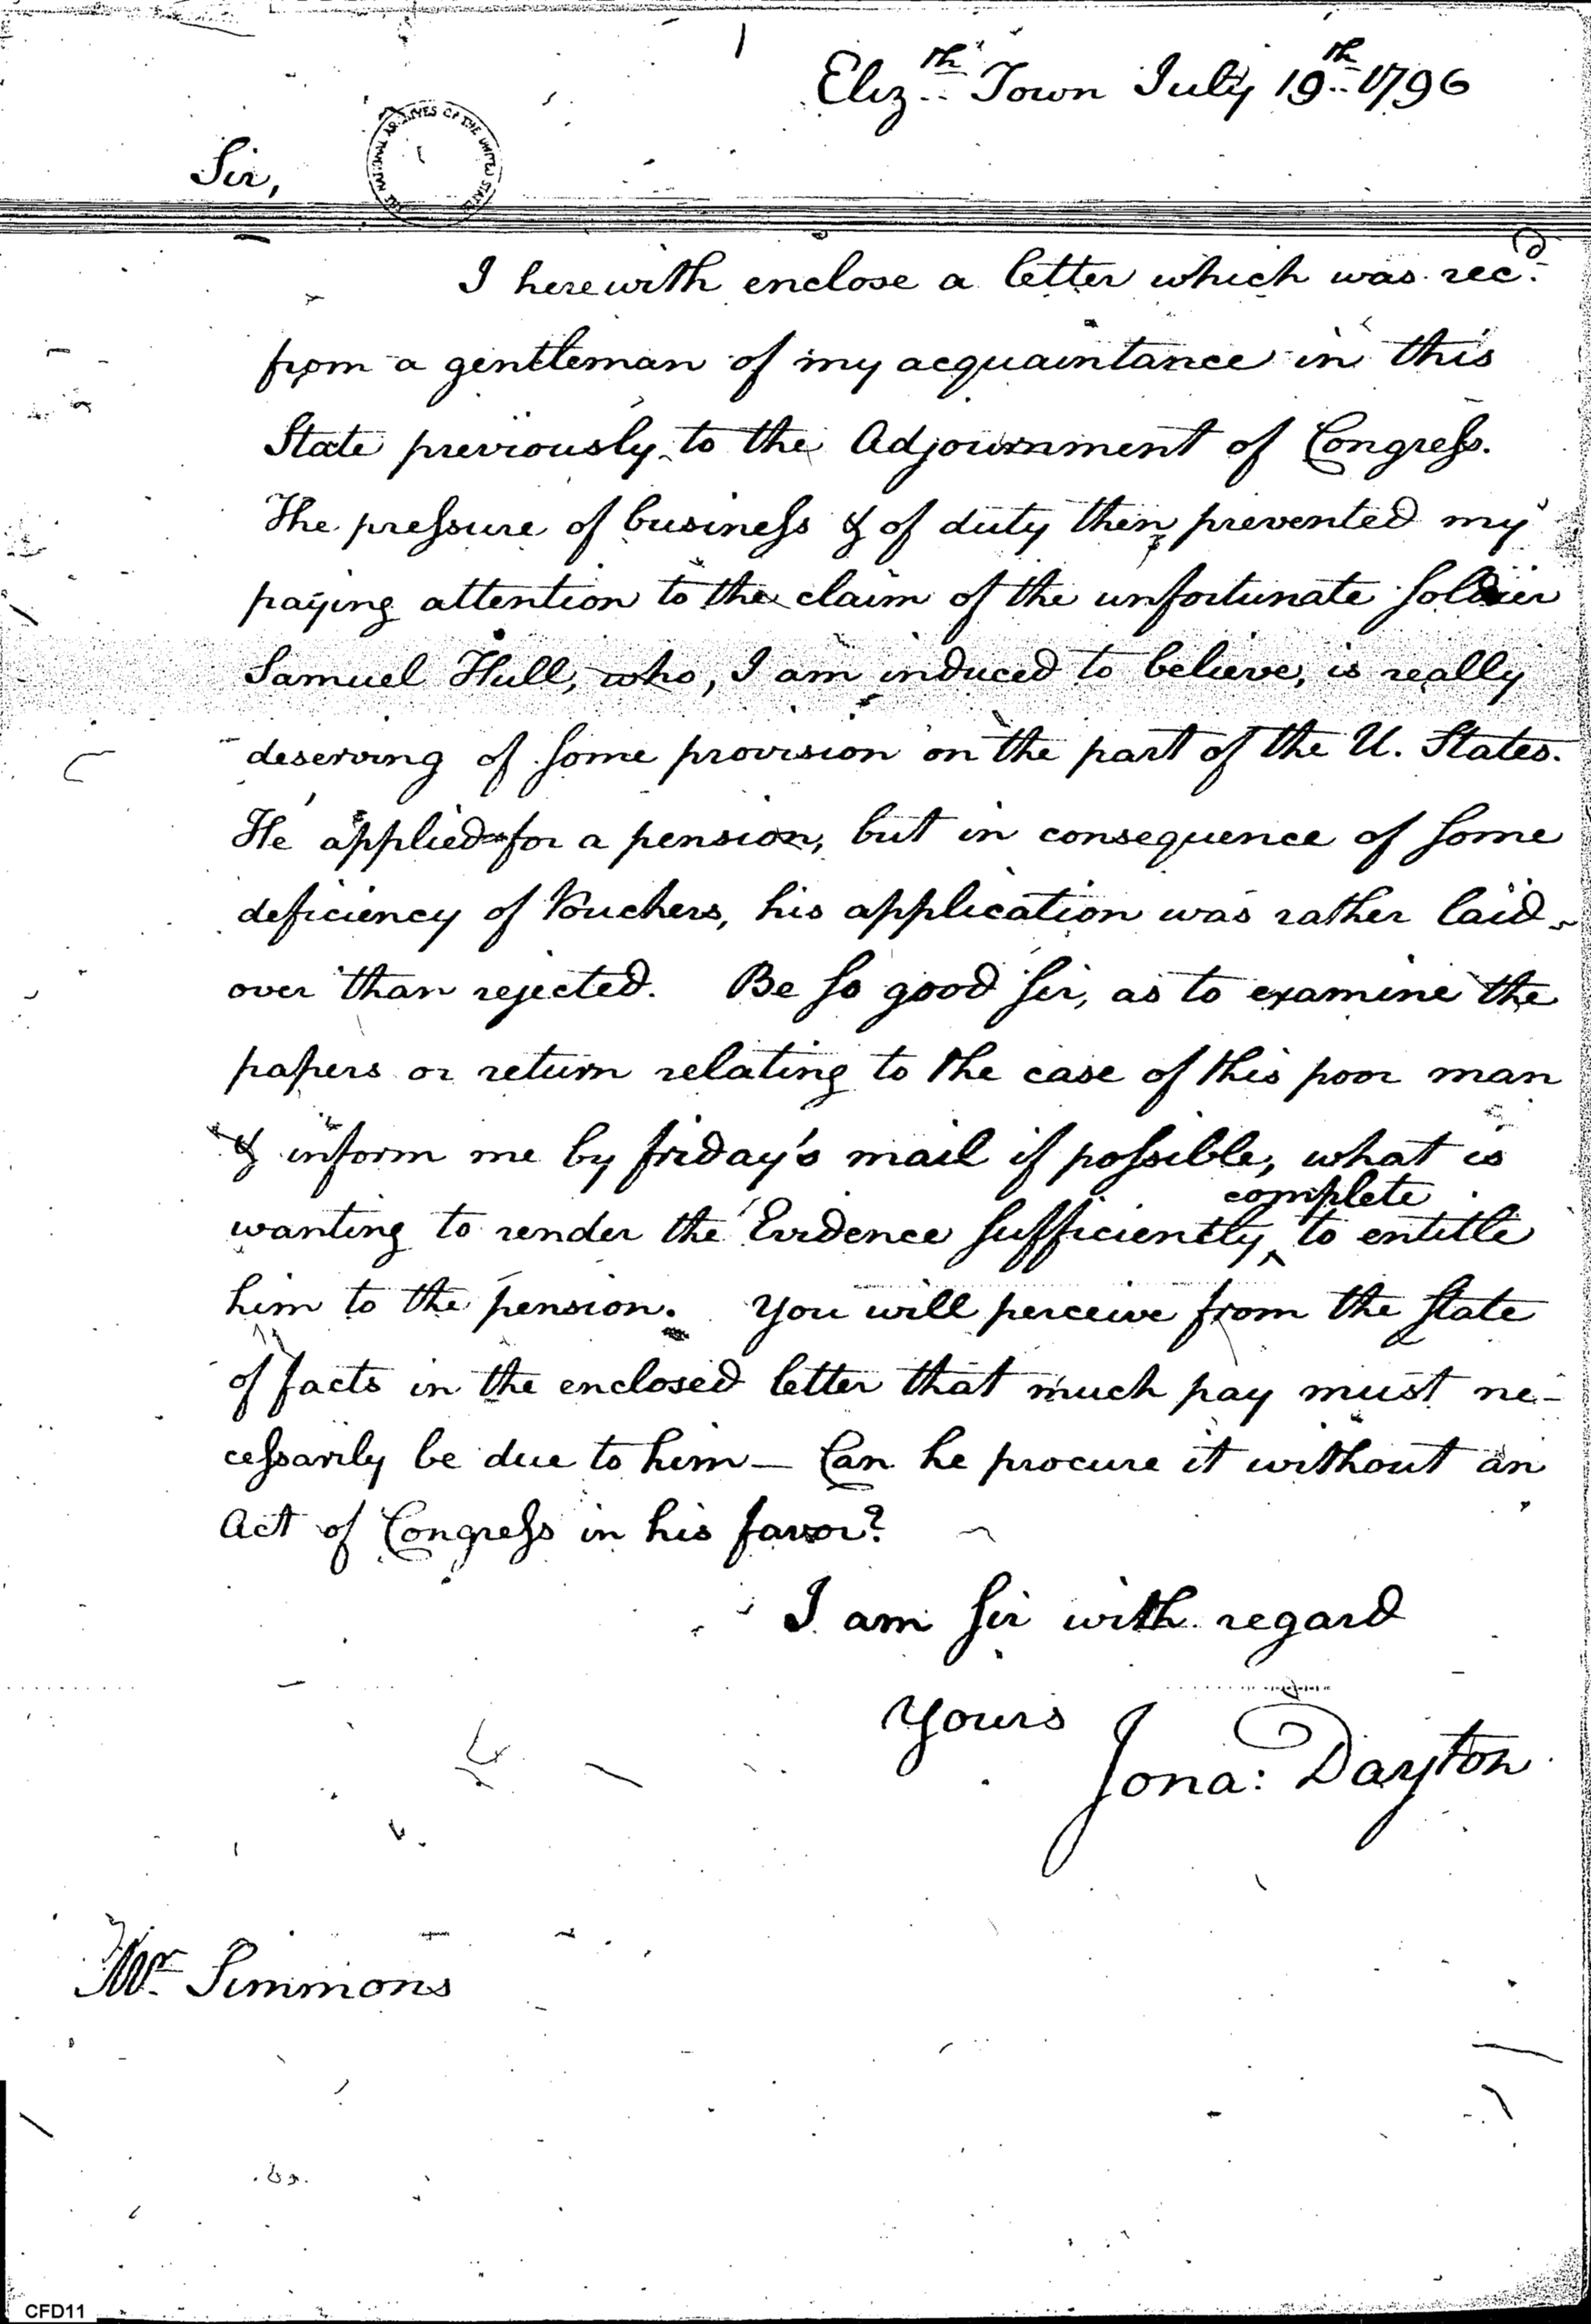 Eliz.th Town July 19th 1796
THE NATIONAL ARCHIVES OF THE UNITED STATES
Sir,
I herewith enclose a letter which was recd.
from a gentleman of my acquaintance in this
State previously to the Adjournment of Congress.
The pressure of business & of duty then prevented my
paying attention to the claim of the unfortunate soldier
Samuel Hull, who, I am induced to believe, is really
deserving of some provision on the part of the U. States.
He applied for a pension, but in consequence of some
deficiency of Vouchers, his application was rather laid
over than rejected. Be so good sir, as to examine the
papers or return relating to the case of this poor man
& inform me by friday's mail if possible, what is
complete
wanting to render the Evidence sufficiently ^ to entitle
him to the pension. You will perceive from the state
of facts in the enclosed letter that much pay must ne-
cessarily be due to him— Can he procure it without an
Act of Congress in his favor?
I am sir with regard
Yours
Jona: Dayton
Mr. Simmons
CFD11